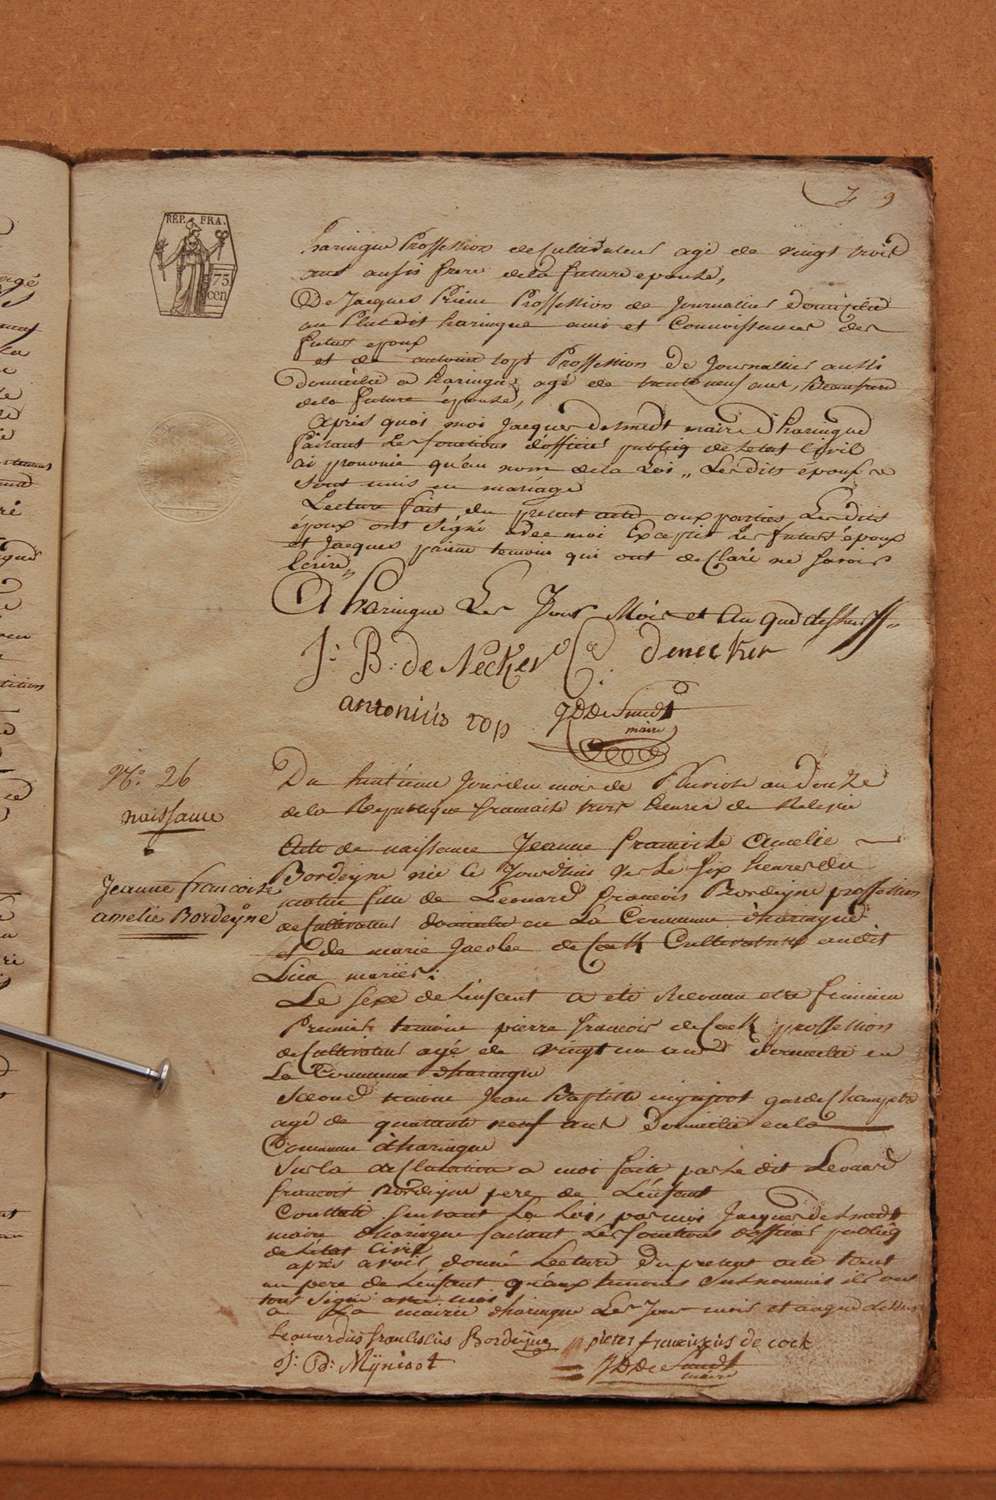 9
REP. FRA.
75
cen
haringue Proffession de Cultivateur agé de vingt trois
ans aussi frere de la future epouse,
De Jacques Prieur Proffession de Journallier domicilié
au Plut dit haringue amis et Connoissance des
futurs epoux
et de antoine top Proffession De Journallier aussi
domicilié a haringue agé de trente neuf ans, Beaufrere
de la future epouse,
Apres quoi moi Jacques desmedt maire D'haringue
faisant les fonctions d'officier publiq de l'etat Civil
ai prononcé qu'au nom de la Loi, Les dits époux
sont unis en mariage
Lecture fait du présent acte aux parties Les dits
époux ont signé avec moi Excepté les futurs époux
et Jacques temoin qui ont declaré ne savoir
Ecrire,,
A haringue Les Jour Mois et An que dessus
J: B: de Necker C: denecker
antonius top JDDeSmedt
maire
N:o 26
naissance
Jeanne francoise
amelie Bordeyne
Du huitieme Jour du mois de Pluviose an Douze
de la Republique francaise trois heures de Relevée
Acte de naissance Jeanne francoise Amelie
Bordeyne née le Jourdhui vers le six heures du
matin fille de Leonard francois Bordeyne proffession
de Cultivateur domicilié en La Commune d'haringue
et de marie Jacobe de Cock Cultivatrice audit
Lieu mariés:
Le sexe de L'enfant a eté Reconnu etre feminin
Premier temoine pierre francois de Cock proffession
de Cultivateur agé de vingt un ans Domicilié en
La Commune d'haringue
Second temoin Jean Baptiste garde Champetre
agé de quarante neuf ans Domicilié en la
Commune d'haringue
Sur la declaration a moi faite par Le dit Leonard
francois Bordeyne pere de L'enfant
Constaté suivant La Loi, par moi Jacques De Smedt
maire d'haringue faisant Les fonctions d'officier publiq
de L'etat Civil
apres avoir donné Lecture du present acte tant
au pere de L'enfant qu'aux temoins ils ont
tous Signé avec moi
a La mairie d'haringue Les Jour mois et an que dessus
Leonardus franciscus Bordeyne pieter franciscus de cock
J: B: Mynisot JDDeSmedt
maire